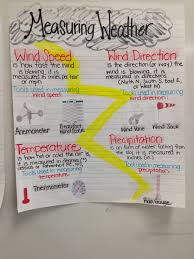 Measuring Weather
Wind Speed
is how fast the
wind is
blowing, it is
measured in
miles per hour
or mph
Tools used in measuring
wind speed:
Anemometer
Beaufort
Wind
Scale
Wind Direction
is the direction
(or way) the
wind is blowing.
it is measured in
directions.
(North N, South S, East E,
or West W)
Tools used in measuring
wind direction:
Wind Vane
Wind
Sock
Temperature
is how hot or
cold the air
is. it is measured
in degrees
Tools used in measuring
temperature:
Thermometer
Precipitation
is any form of water falling
from the sky. it is measured
in inches
Tools used in measuring
precipitation:
Rain Gauge